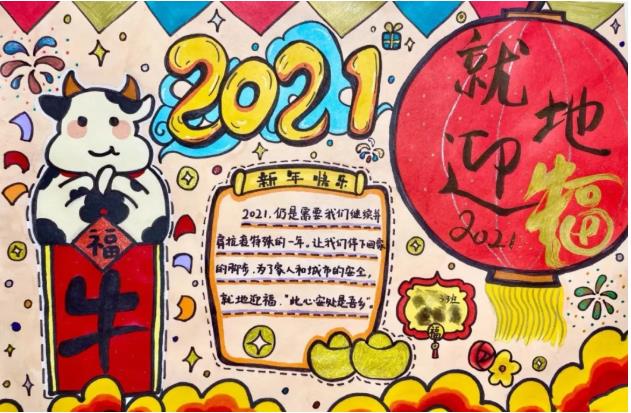 2021
福
牛
新年快乐
2021.仍是需要我们继续并
肩抗疫特殊的一年,让我们停下回家
的脚步,为了家人和城市的安全,
就地迎福,"此心安处是吾乡".
就
地
迎
福
2021
班
福